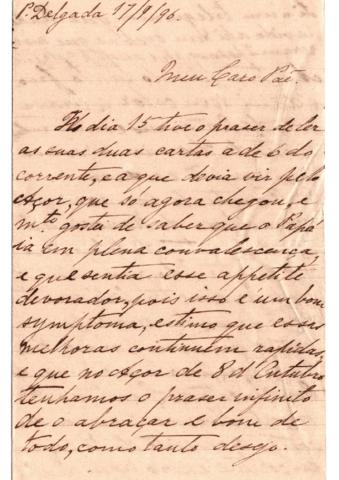 P. Delgada 17/9/96.
Meu Caro Pae.
No dia 15 tive o praser de ler
as suas duas cartas a de 6 do
corrente, e a que devia vir pelo
Açor, que só agora chegou, e
m.to gosta de saber que o Papá
ia em plena convalescença,
e que sentia esse appetite
devorador, pois isso é um bom
symptoma, estimo que essas
melhoras continuem rapidas,
e que no Açor de 8 d'Outubro
tenhamos o praser infinito
de o abraçar e bom de
todo, como tanto desejo.